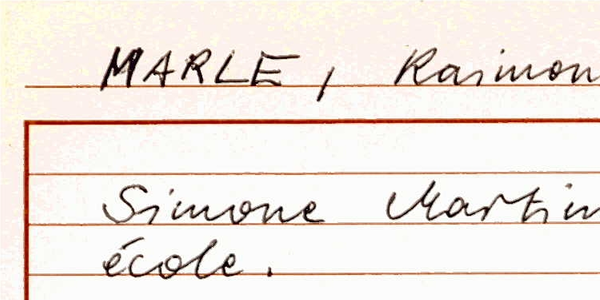 MARLE, Raimon
Simone Martin
école.